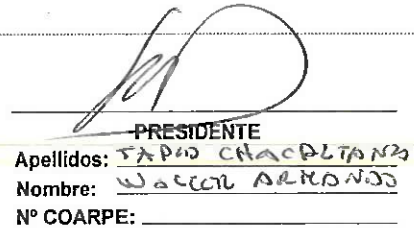 PRESIDENTE
Apellidos: TAPIA CHACALTANA
Nombre: WALTER ARMANDO
Nº COARPE: